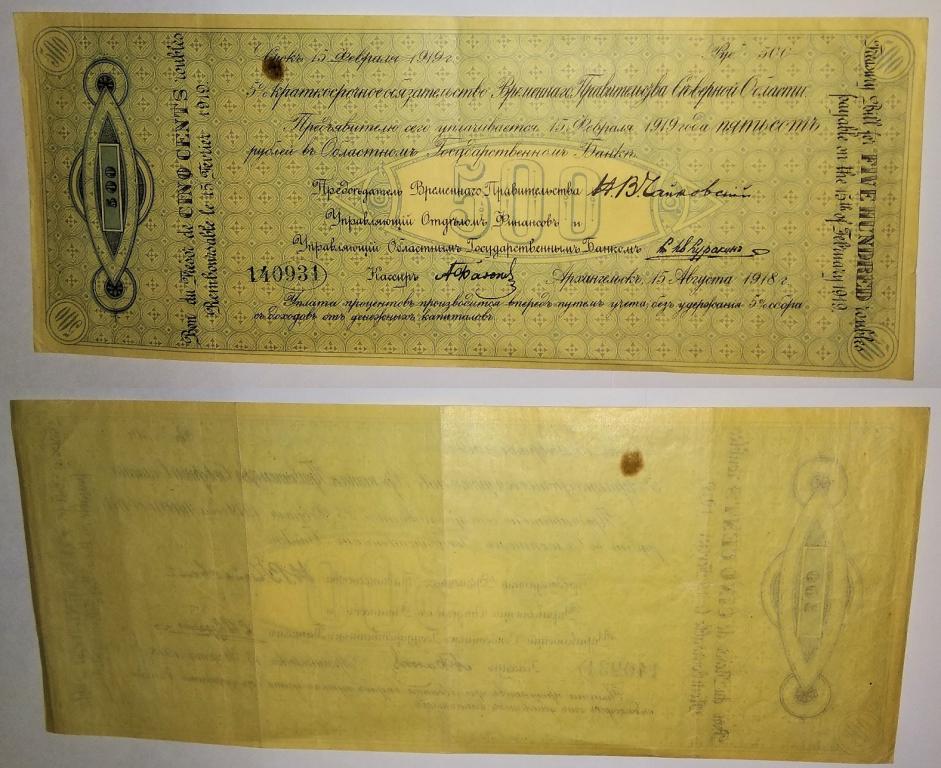 Bon du Trésor de CINQ CENTS roubles
Remboursable le 15 Février 1919.
500
Срокъ 15 Февраля 1919 г.
Руб. 500
5% краткосрочное обязательство Временнаго Правительства Сѣверной Области.
Предъявителю сего уплачивается 15 Февраля 1919 года пятьсотъ
рублей въ Областномъ Государственномъ Банкѣ.
500
Предсѣдатель Временнаго Правительства Н. В. Чайковскій
Управляющій Отдѣломъ Финансовъ и
Управляющій Областнымъ Государственнымъ Банкомъ Куракинъ
140931
Кассиръ
Архангельскъ, 15 Августа 1918 г.
Уплата процентовъ производится впередъ путемъ учета, безъ удержанія 5% сбора
съ доходовъ отъ денежныхъ капиталовъ.
Treasury Bill for FIVE HUNDRED roubles
payable on the 15th of February 1919.